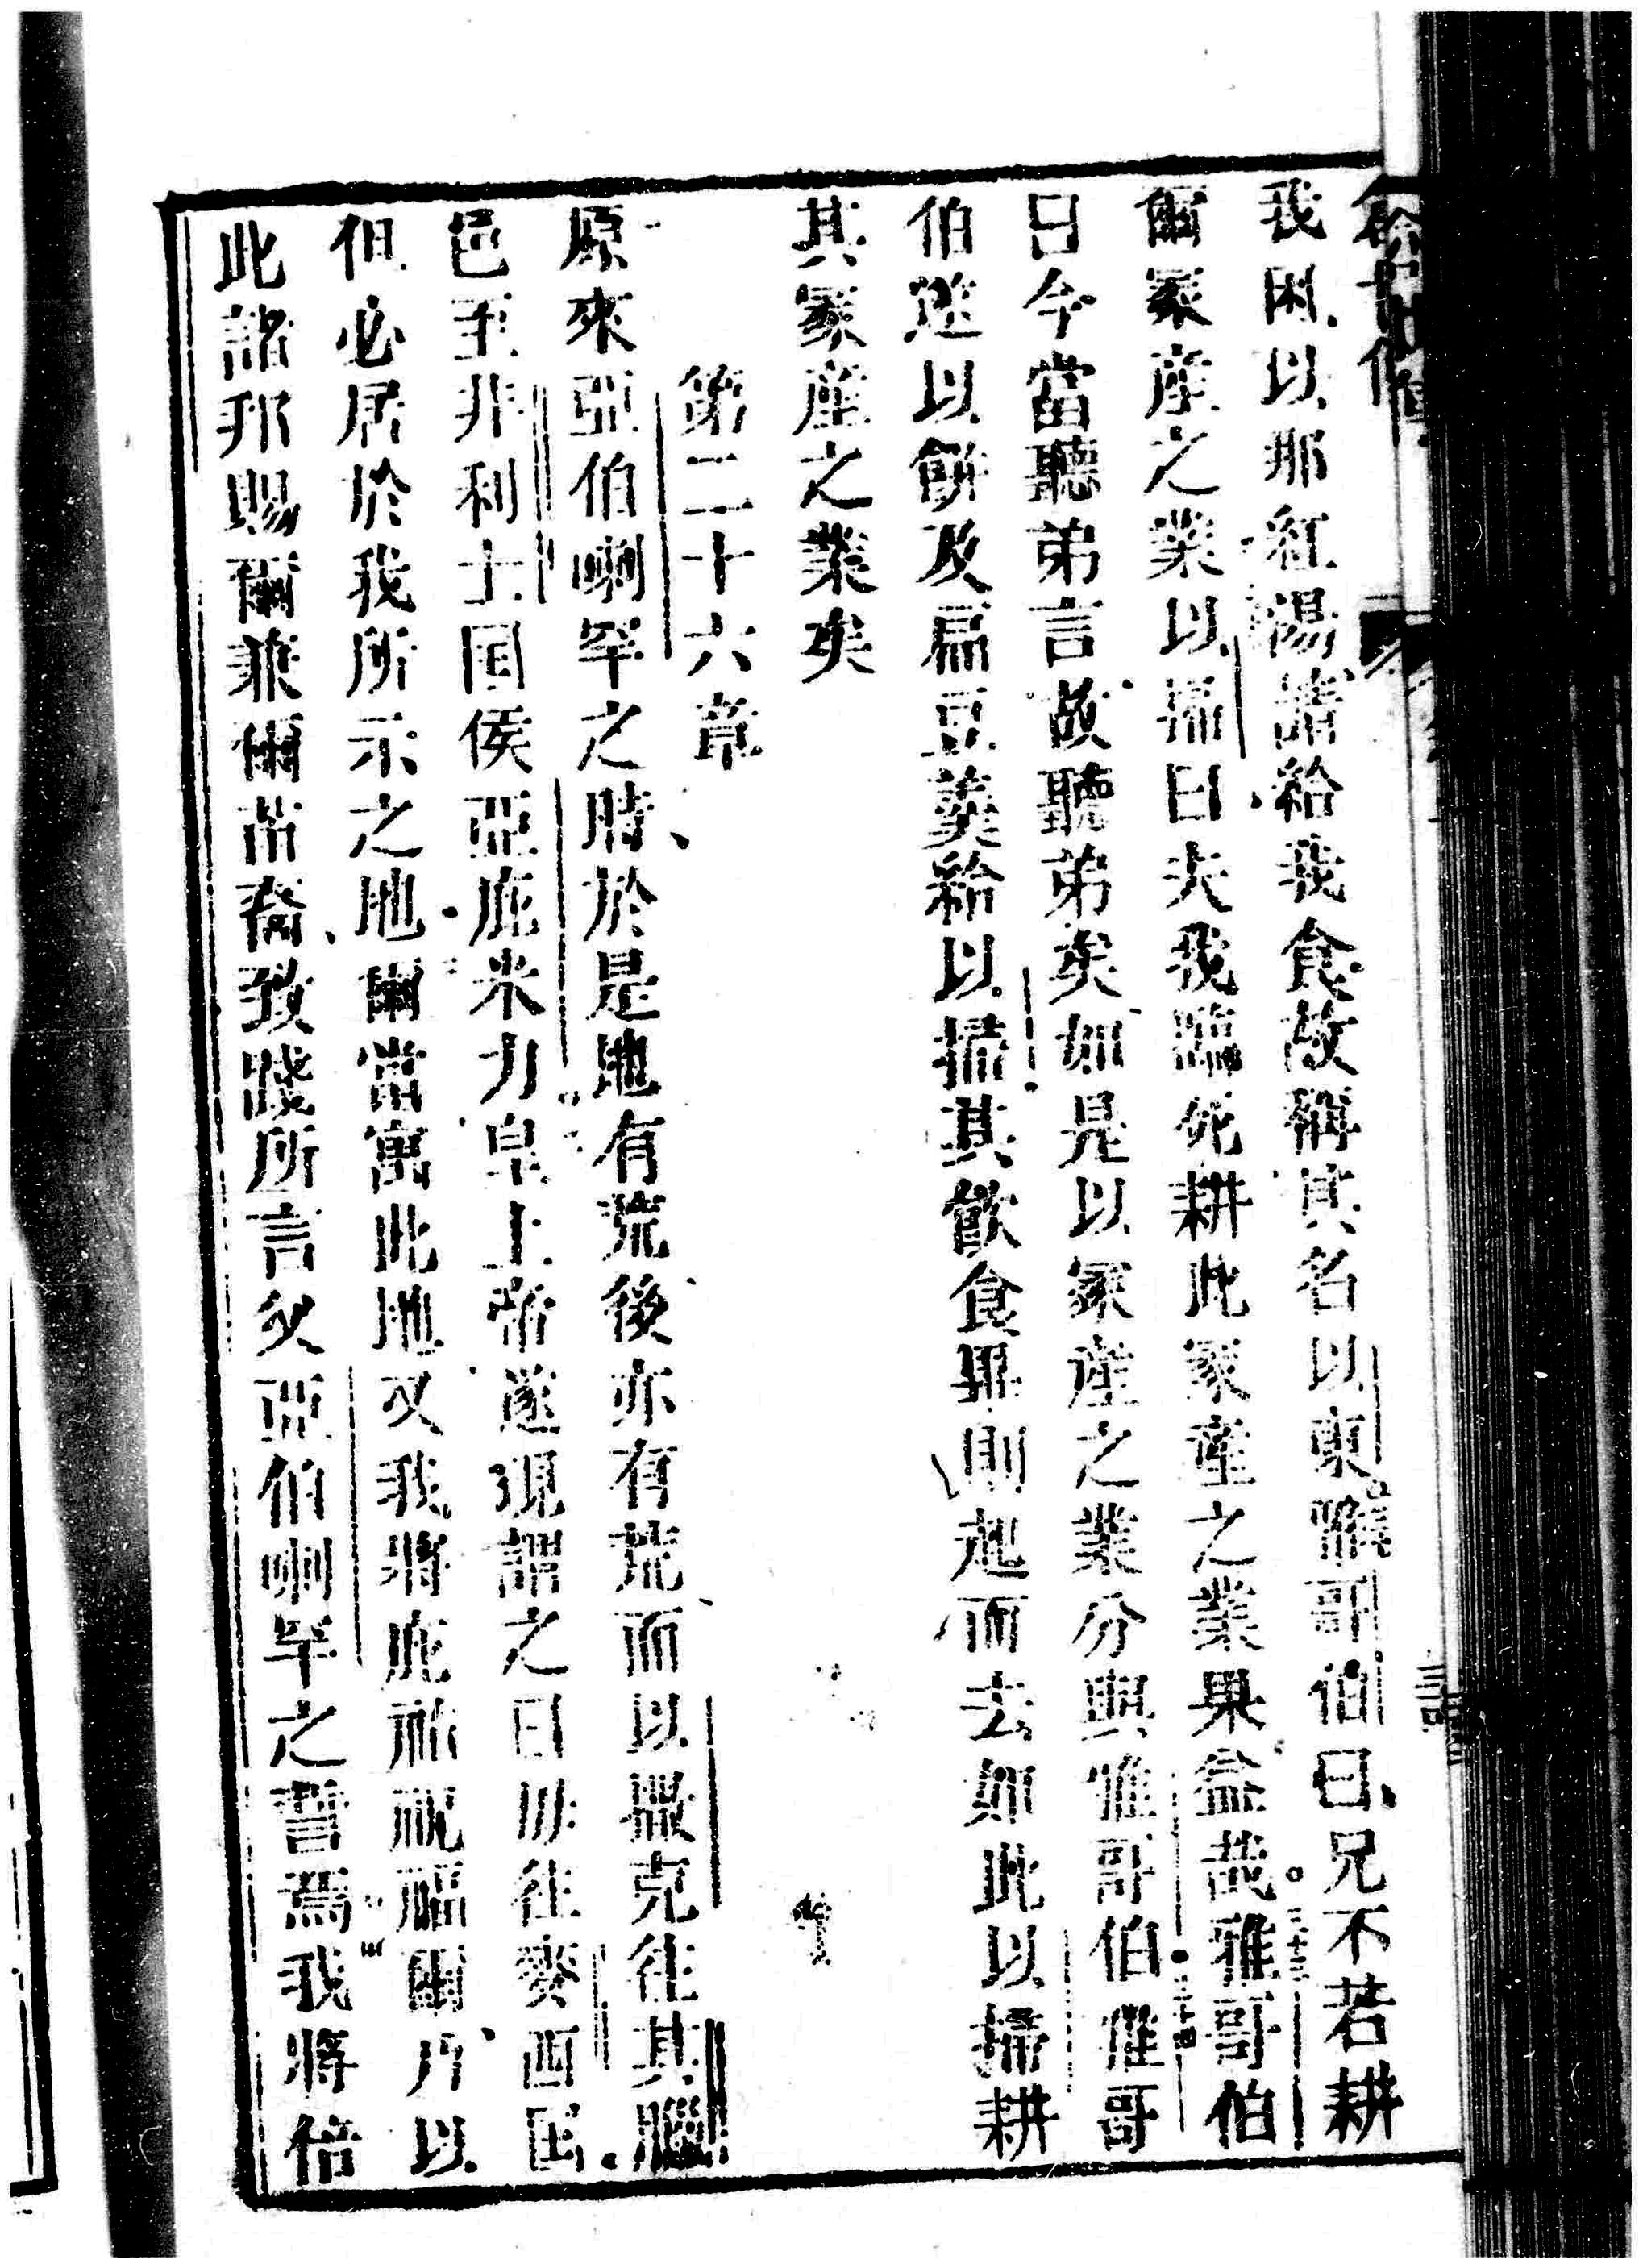 我困以那紅湯請給我食故稱其名以東雅哥伯曰兄不若耕
爾家產之業以掃曰夫我臨死耕此家產之業果益哉雅哥伯
曰今當聽弟言故聽弟矣如是以家產之業分與雅哥伯雅哥
伯遂以餅及扁豆羹給以掃其飲食畢則起而去如此以掃耕
其家產之業矣
第二十六章
原來亞伯喇罕之時於是地有荒後亦有荒而以撒克往其臘
邑至非利士国侯亞庇米力皐上帝遂現謂之曰毋往麥西国
但必居於我所示之地爾當寓此地又我將庇祐祝福爾乃以
此諸邦賜爾兼爾苗裔致踐所言父亞伯喇罕之誓焉我將倍